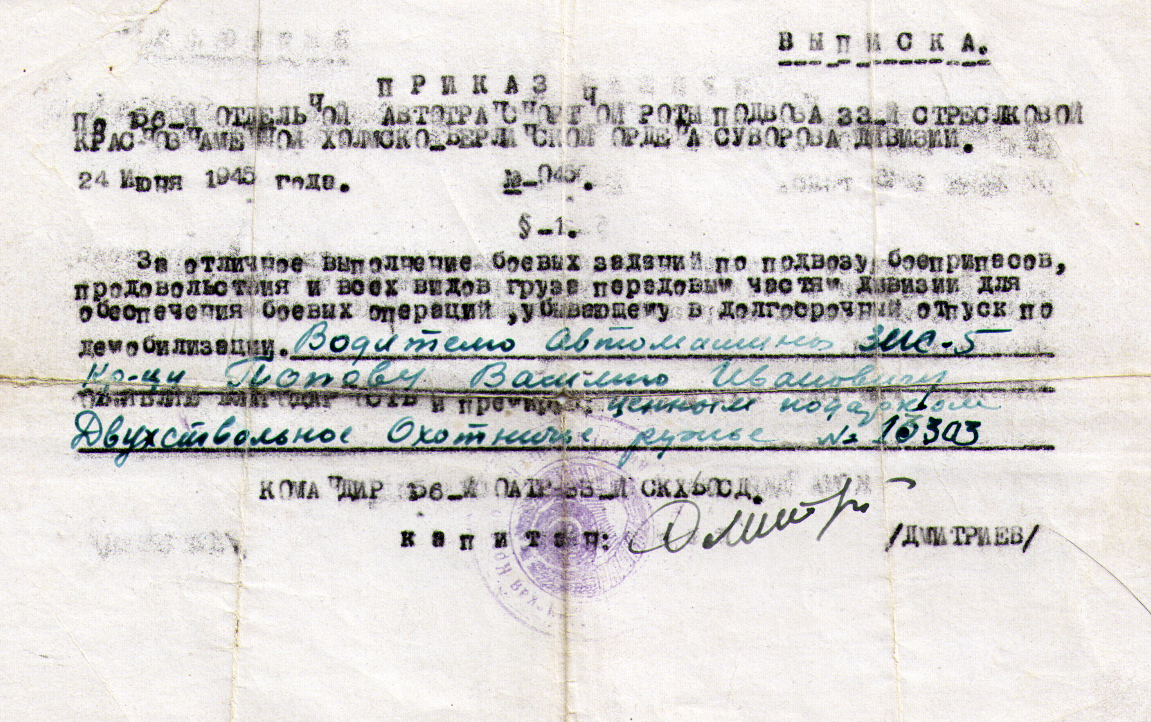 ВЫПИСКА.
ПРИКАЗ
По 156-й ОТДЕЛЬНОЙ АВТОТРАНСПОРТНОЙ РОТЫ ПОДВОЗА 33-й СТРЕСЛКОВОЙ
КРАСНОЗНАМЕННОЙ ХОЛМСКО-БЕРЛИНСКОЙ ОРДЕНА СУВОРОВА ДИВИЗИИ.
24 Июня 1945 года. №-045
§-1.
За отличное выполнение боевых заданий по подвозу боеприпасов,
продовольствия и всех видов груза передовым частям дивизии для
обеспечения боевых операций ,убывающему в долгосрочный отпуск по
демобилизации. Водителю Автомашины ЗИС-5
Кр-цу Попову Василию Ивановичу
и ценным подарком
Двухствольное Охотничье ружье № 16303
КОМАНДИР 156-й ОАТР-33-й СКХБОСД.
капитан: Дмитр /ДМИТРИЕВ/